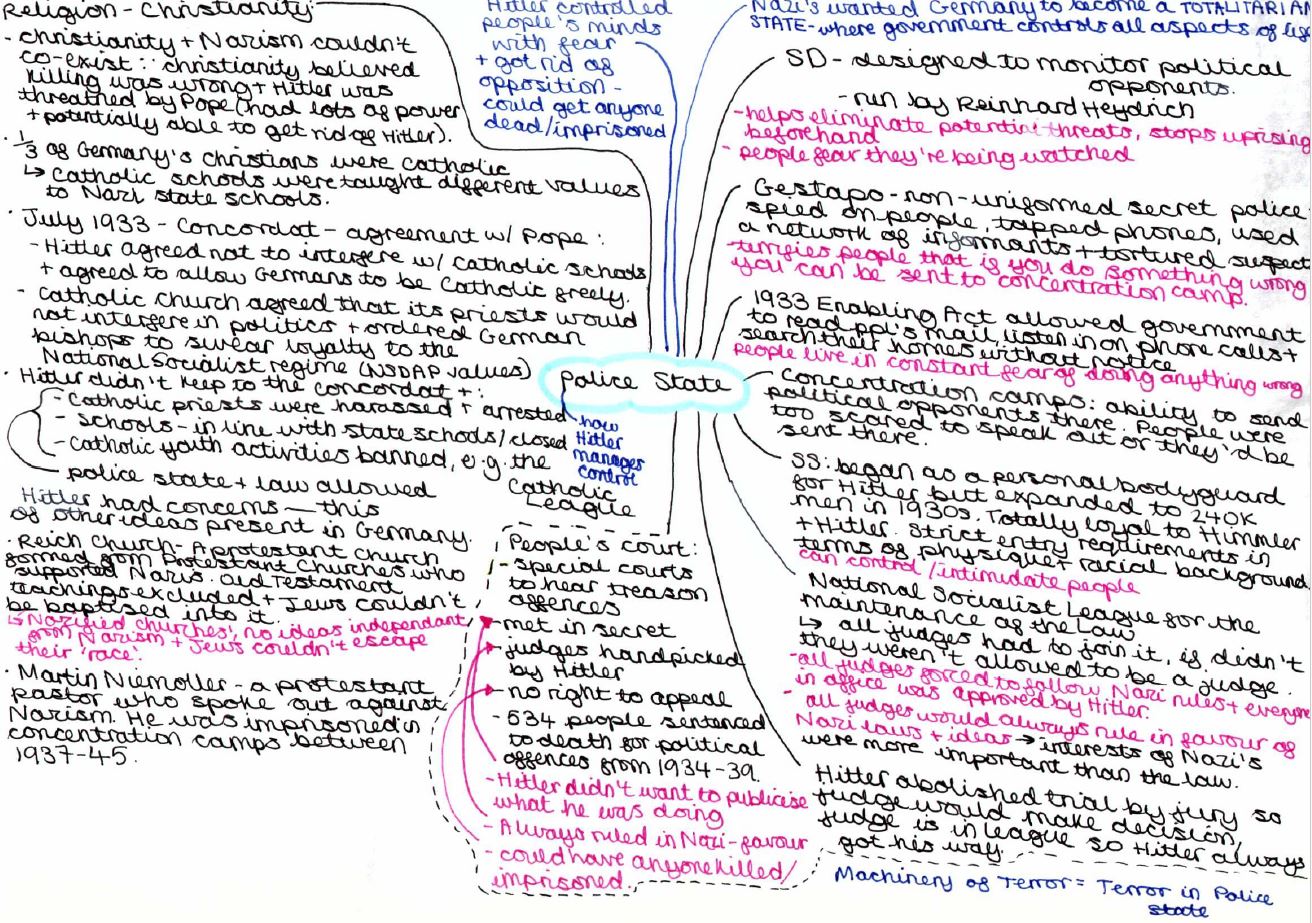 Religion - Christianity
- Christianity + Nazism couldn't
co-exist ∵ christianity believed
killing was wrong + Hitler was
threathed by Pope (had lots of power
+ potentially able to get rid of Hitler).
· 1/3 of Germany's christians were catholic
↳ Catholic schools were taught different values
to Nazi state schools.
· July 1933 - Concordat - agreement w/ Pope :
- Hitler agreed not to intefere w/ catholic schools
+ agreed to allow Germans to be Catholic freely.
- Catholic church agreed that its priests would
not interfere in politics + ordered German
bishops to swear loyalty to the
National Socialist regime (NSDAP values)
· Hitler didn't keep to the concordat + :
- Catholic priests were harassed + arrested
- schools - in line with state schools / closed
- Catholic youth activities banned, e.g. the
Catholic
League
police state + law allowed
Hitler had concerns — this
of other ideas present in Germany.
· Reich Church - A protestant church
formed from Protestant churches who
supported Nazis. Old Testament
teachings excluded + Jews couldn't
be baptised into it.
↳ Nazified churches, no ideas independant
from Nazism + Jews couldn't escape
their 'race'.
· Martin Niemoller - a protestant
pastor who spoke out against
Nazism. He was imprisoned in
concentration camps between
1937-45.
Hitler controlled
people's minds
with fear
+ got rid of
opposition -
could get anyone
dead/imprisoned
Police State
how
Hitler
manages
control
People's court:
- special courts
to hear treason
offences
- met in secret
- judges handpicked
by Hitler
- no right to appeal
- 534 people sentenced
to death for political
offences from 1934-39.
- Hitler didn't want to publicise
what he was doing
- Always ruled in Nazi-favour
- could have anyone killed/
imprisoned.
Nazi's wanted Germany to become a TOTALITARIAN
STATE - where government controls all aspects of life
SD - designed to monitor political
opponents.
- run by Reinhard Heydrich
- helps eliminate potential threats, stops uprising
beforehand
- people fear they're being watched
Gestapo - non-uniformed secret police
spied on people, tapped phones, used
a network of informants + tortured suspect
- terrifies people that if you do something wrong
you can be sent to concentration camp.
1933 Enabling Act allowed government
to read ppl's mail, listen in on phone calls +
search their homes without notice
people live in constant fear of doing anything wrong
Concentration camps: ability to send
political opponents there. People were
too scared to speak out or they'd be
sent there.
SS: began as a personal bodyguard
for Hitler but expanded to 240K
men in 1930s. Totally loyal to Himmler
+ Hitler. Strict entry requirements in
terms of physique + racial background
can control / intimidate people
National Socialist League for the
maintenance of the Law
↳ all judges had to join it, if didn't
they weren't allowed to be a judge.
- all judges forced to follow Nazi rules + everyone
in office was approved by Hitler.
- all judges would always rule in favour of
Nazi laws + ideas → interests of Nazi's
were more important than the law.
Hitler abolished trial by jury so
judge would make decision,
judge is in league so Hitler always
got his way.
Machinery of Terror = Terror in Police
state